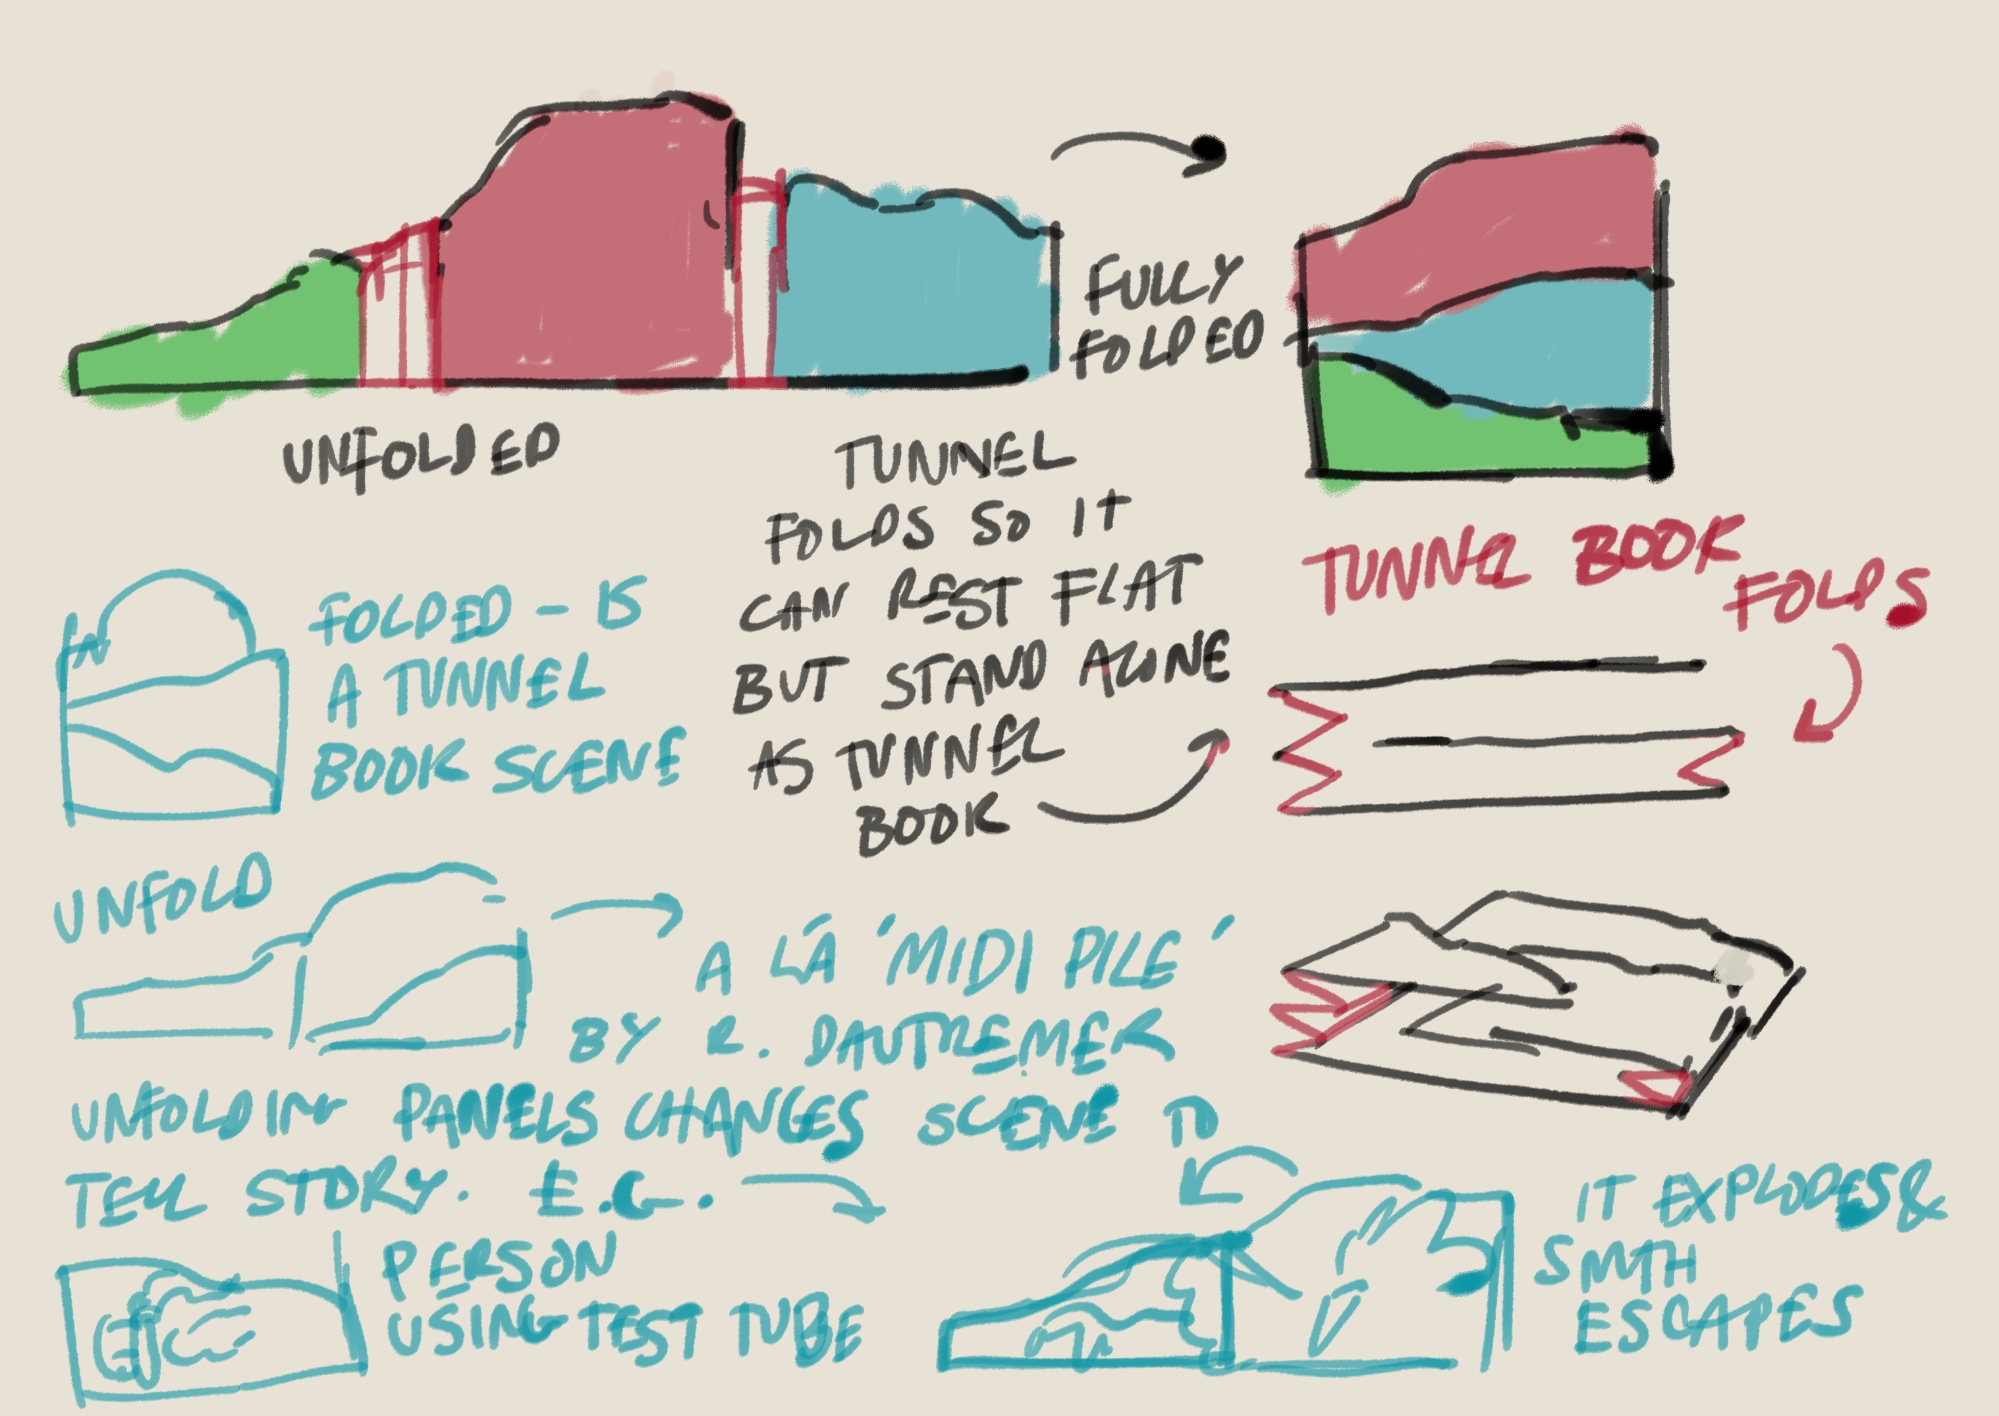 FULLY
FOLDED
UNFOLDED
TUNNEL
FOLDS SO IT
CAN REST FLAT
BUT STAND ALONE
AS TUNNEL
BOOK
TUNNEL BOOK
FOLDS
FOLDED - IS
A TUNNEL
BOOK SCENE
UNFOLD
A LÁ 'MIDI PILE'
BY R. DAUTREMER
UNFOLDING PANELS CHANGES SCENE TO
TELL STORY. E.G.
PERSON
USING TEST TUBE
IT EXPLODES &
SMTH
ESCAPES